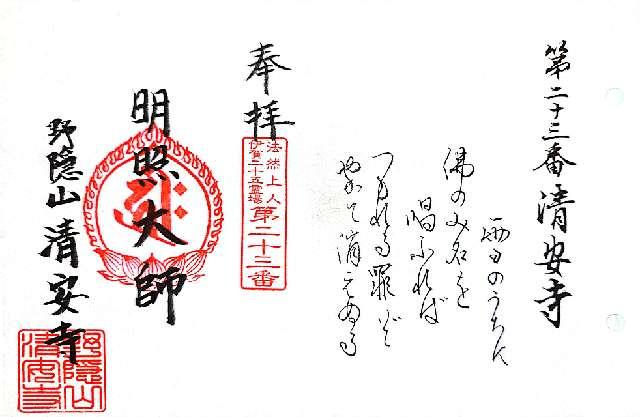 第二十三番 清安寺
雪のうちに
佛のみ名を
唱ふれば
つもれる罪ぞ
やがて消えぬる
奉拝
法然上人
伊賀二十五霊場
第二十三番
明照大師
野隠山 清安寺
野隠山
清安寺